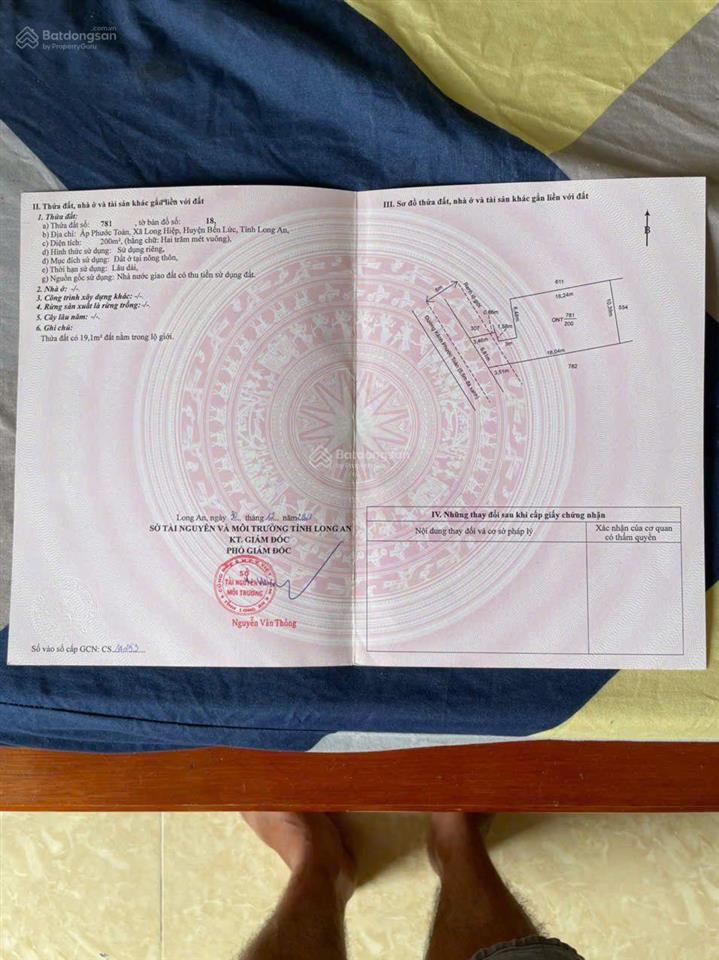 Batdongsan.com.vn
by PropertyGuru
Batdongsan
by PropertyGuru
II. Thửa đất, nhà ở và tài sản khác gắn liền với đất
1. Thửa đất:
a) Thửa đất số: 781, tờ bản đồ số: 18,
b) Địa chỉ: Ấp Phước Toàn, Xã Long Hiệp, Huyện Bến Lức, Tỉnh Long An,
c) Diện tích: 200m², (bằng chữ: Hai trăm mét vuông),
d) Hình thức sử dụng: Sử dụng riêng,
đ) Mục đích sử dụng: Đất ở tại nông thôn,
e) Thời hạn sử dụng: Lâu dài,
g) Nguồn gốc sử dụng: Nhà nước giao đất có thu tiền sử dụng đất.
2. Nhà ở: -/-.
3. Công trình xây dựng khác: -/-.
4. Rừng sản xuất là rừng trồng: -/-.
5. Cây lâu năm: -/-.
6. Ghi chú:
Thửa đất có 19,1m² đất nằm trong lộ giới.
Long An, ngày tháng 12 năm
SỞ TÀI NGUYÊN VÀ MÔI TRƯỜNG TỈNH LONG AN
KT. GIÁM ĐỐC
PHÓ GIÁM ĐỐC
SỞ
TÀI NGUYÊN VÀ
MÔI TRƯỜNG
TỈNH LONG AN
Nguyễn Văn Thông
Số vào sổ cấp GCN: CS
III. Sơ đồ thửa đất, nhà ở và tài sản khác gắn liền với đất
B
611
18,24m
10,39m
554
6,48m
ONT 781
200
5m
Ranh lộ giới
0,66m
1,58m
307
3,46m
3m
6,61m
18,04m
3,51m
782
Đường Kênh Phước Toàn (5,5m đá xanh)
IV. Những thay đổi sau khi cấp giấy chứng nhận
Nội dung thay đổi và cơ sở pháp lý
Xác nhận của cơ quan
có thẩm quyền
Batdongsan
by PropertyGuru